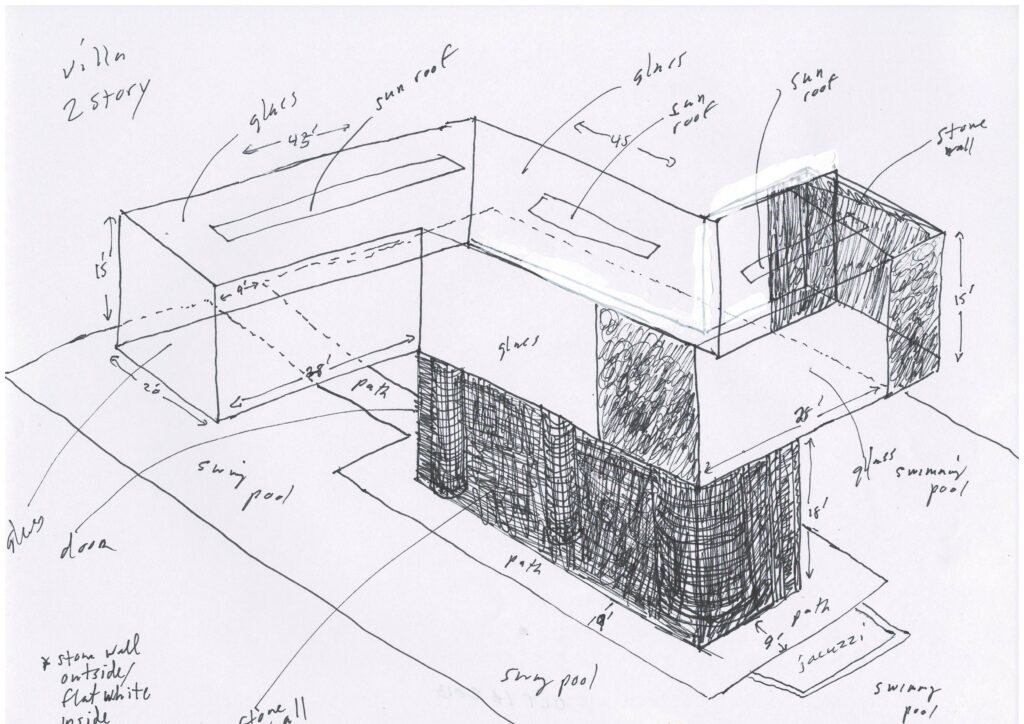 villa
2 story
glass
43'
sun roof
glass
45
sun
roof
sun
roof
stone
wall
15'
9'
20'
28'
path
glass
15'
28'
glass
swimming
pool
swim
pool
glass
door
18'
path
9'
path
9'
jacuzzi
* stone wall
outside/
flat white
inside
stone
swim pool
swimming
pool